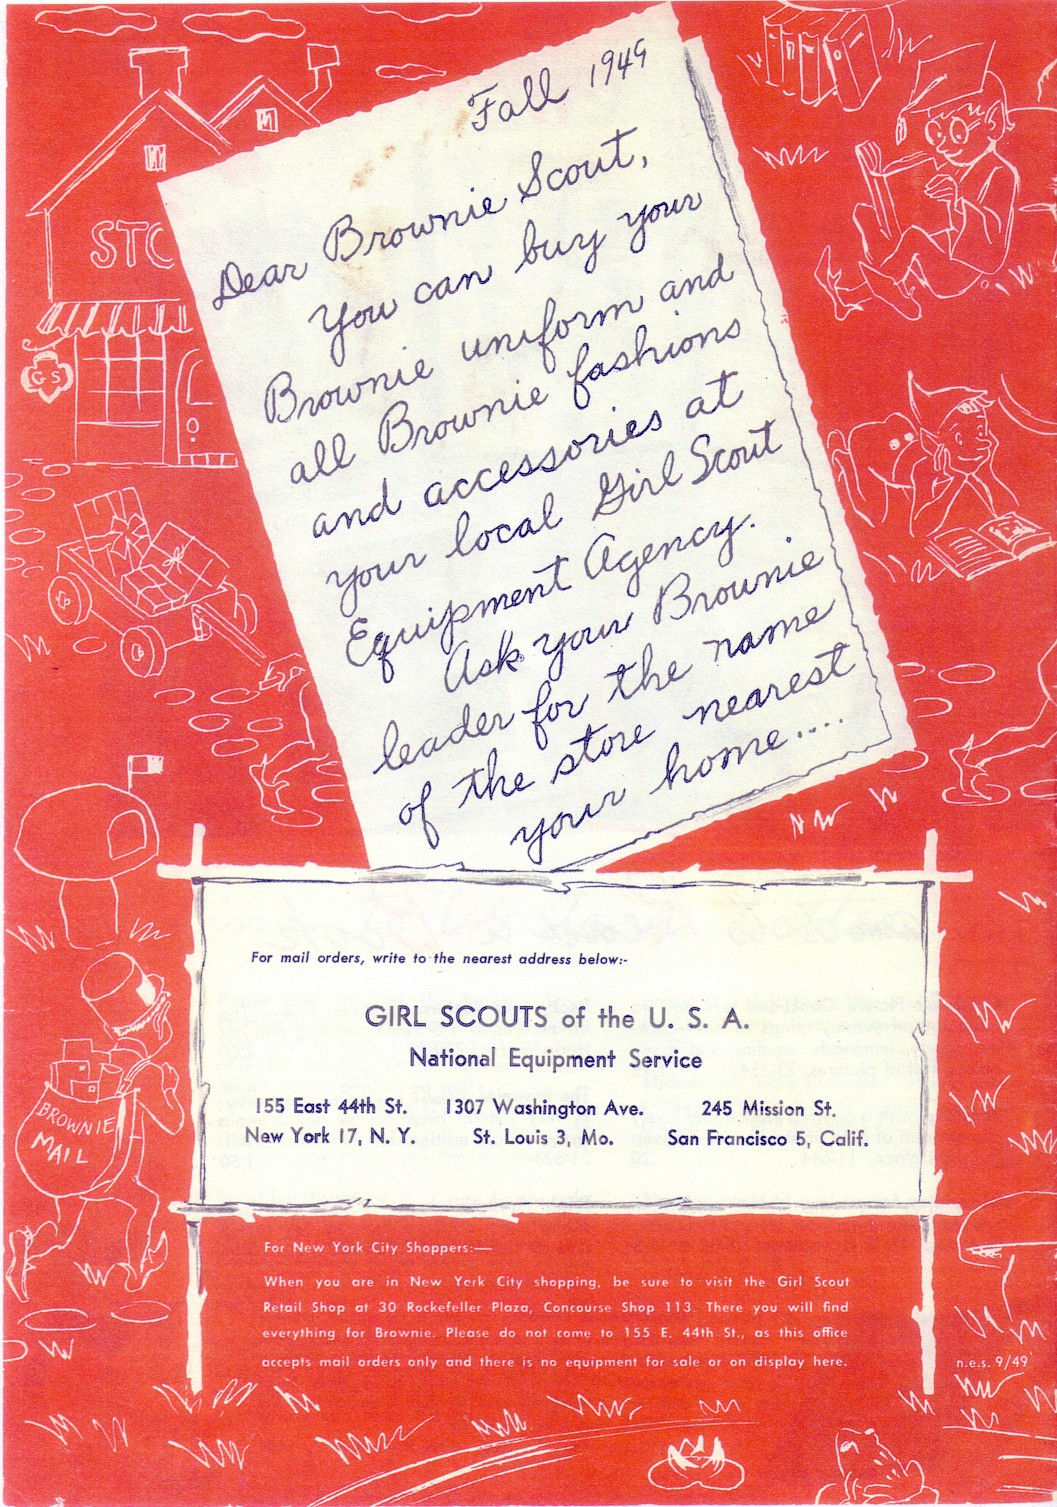 Fall 1949
Dear Brownie Scout,
You can buy your
Brownie uniform and
all Brownie fashions
and accessories at
your local Girl Scout
Equipment Agency.
Ask your Brownie
leader for the name
of the store nearest
your home....
STO
GS
BROWNIE
MAIL
For mail orders, write to the nearest address below:-
GIRL SCOUTS of the U. S. A.
National Equipment Service
155 East 44th St. 1307 Washington Ave. 245 Mission St.
New York 17, N. Y. St. Louis 3, Mo. San Francisco 5, Calif.
For New York City Shoppers:—
When you are in New York City shopping, be sure to visit the Girl Scout
Retail Shop at 30 Rockefeller Plaza, Concourse Shop 113. There you will find
everything for Brownie. Please do not come to 155 E. 44th St., as this office
accepts mail orders only and there is no equipment for sale or on display here.
n.e.s. 9/49